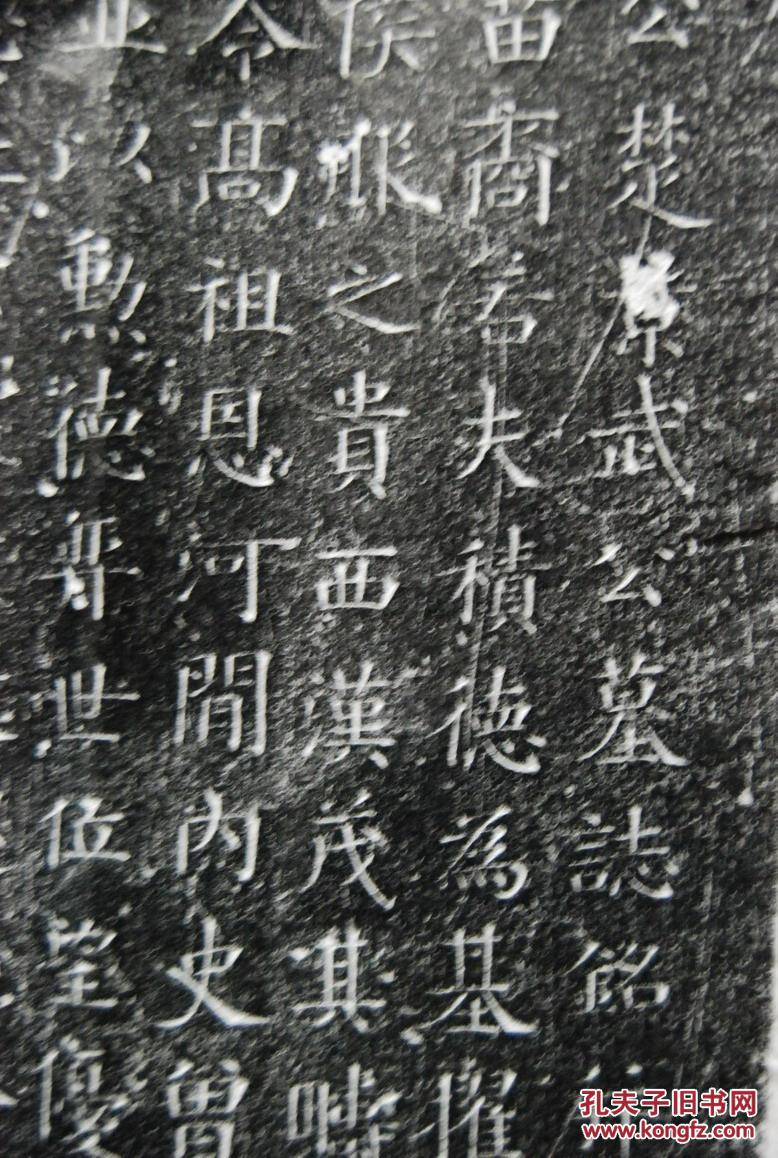 公楚景武公墓誌銘并
苗裔若夫積德為基
侯服之貴西漢茂其疇
令高祖恩河間內史曾
業以勲德弈世位望優
孔夫子旧书网
www.kongfz.com